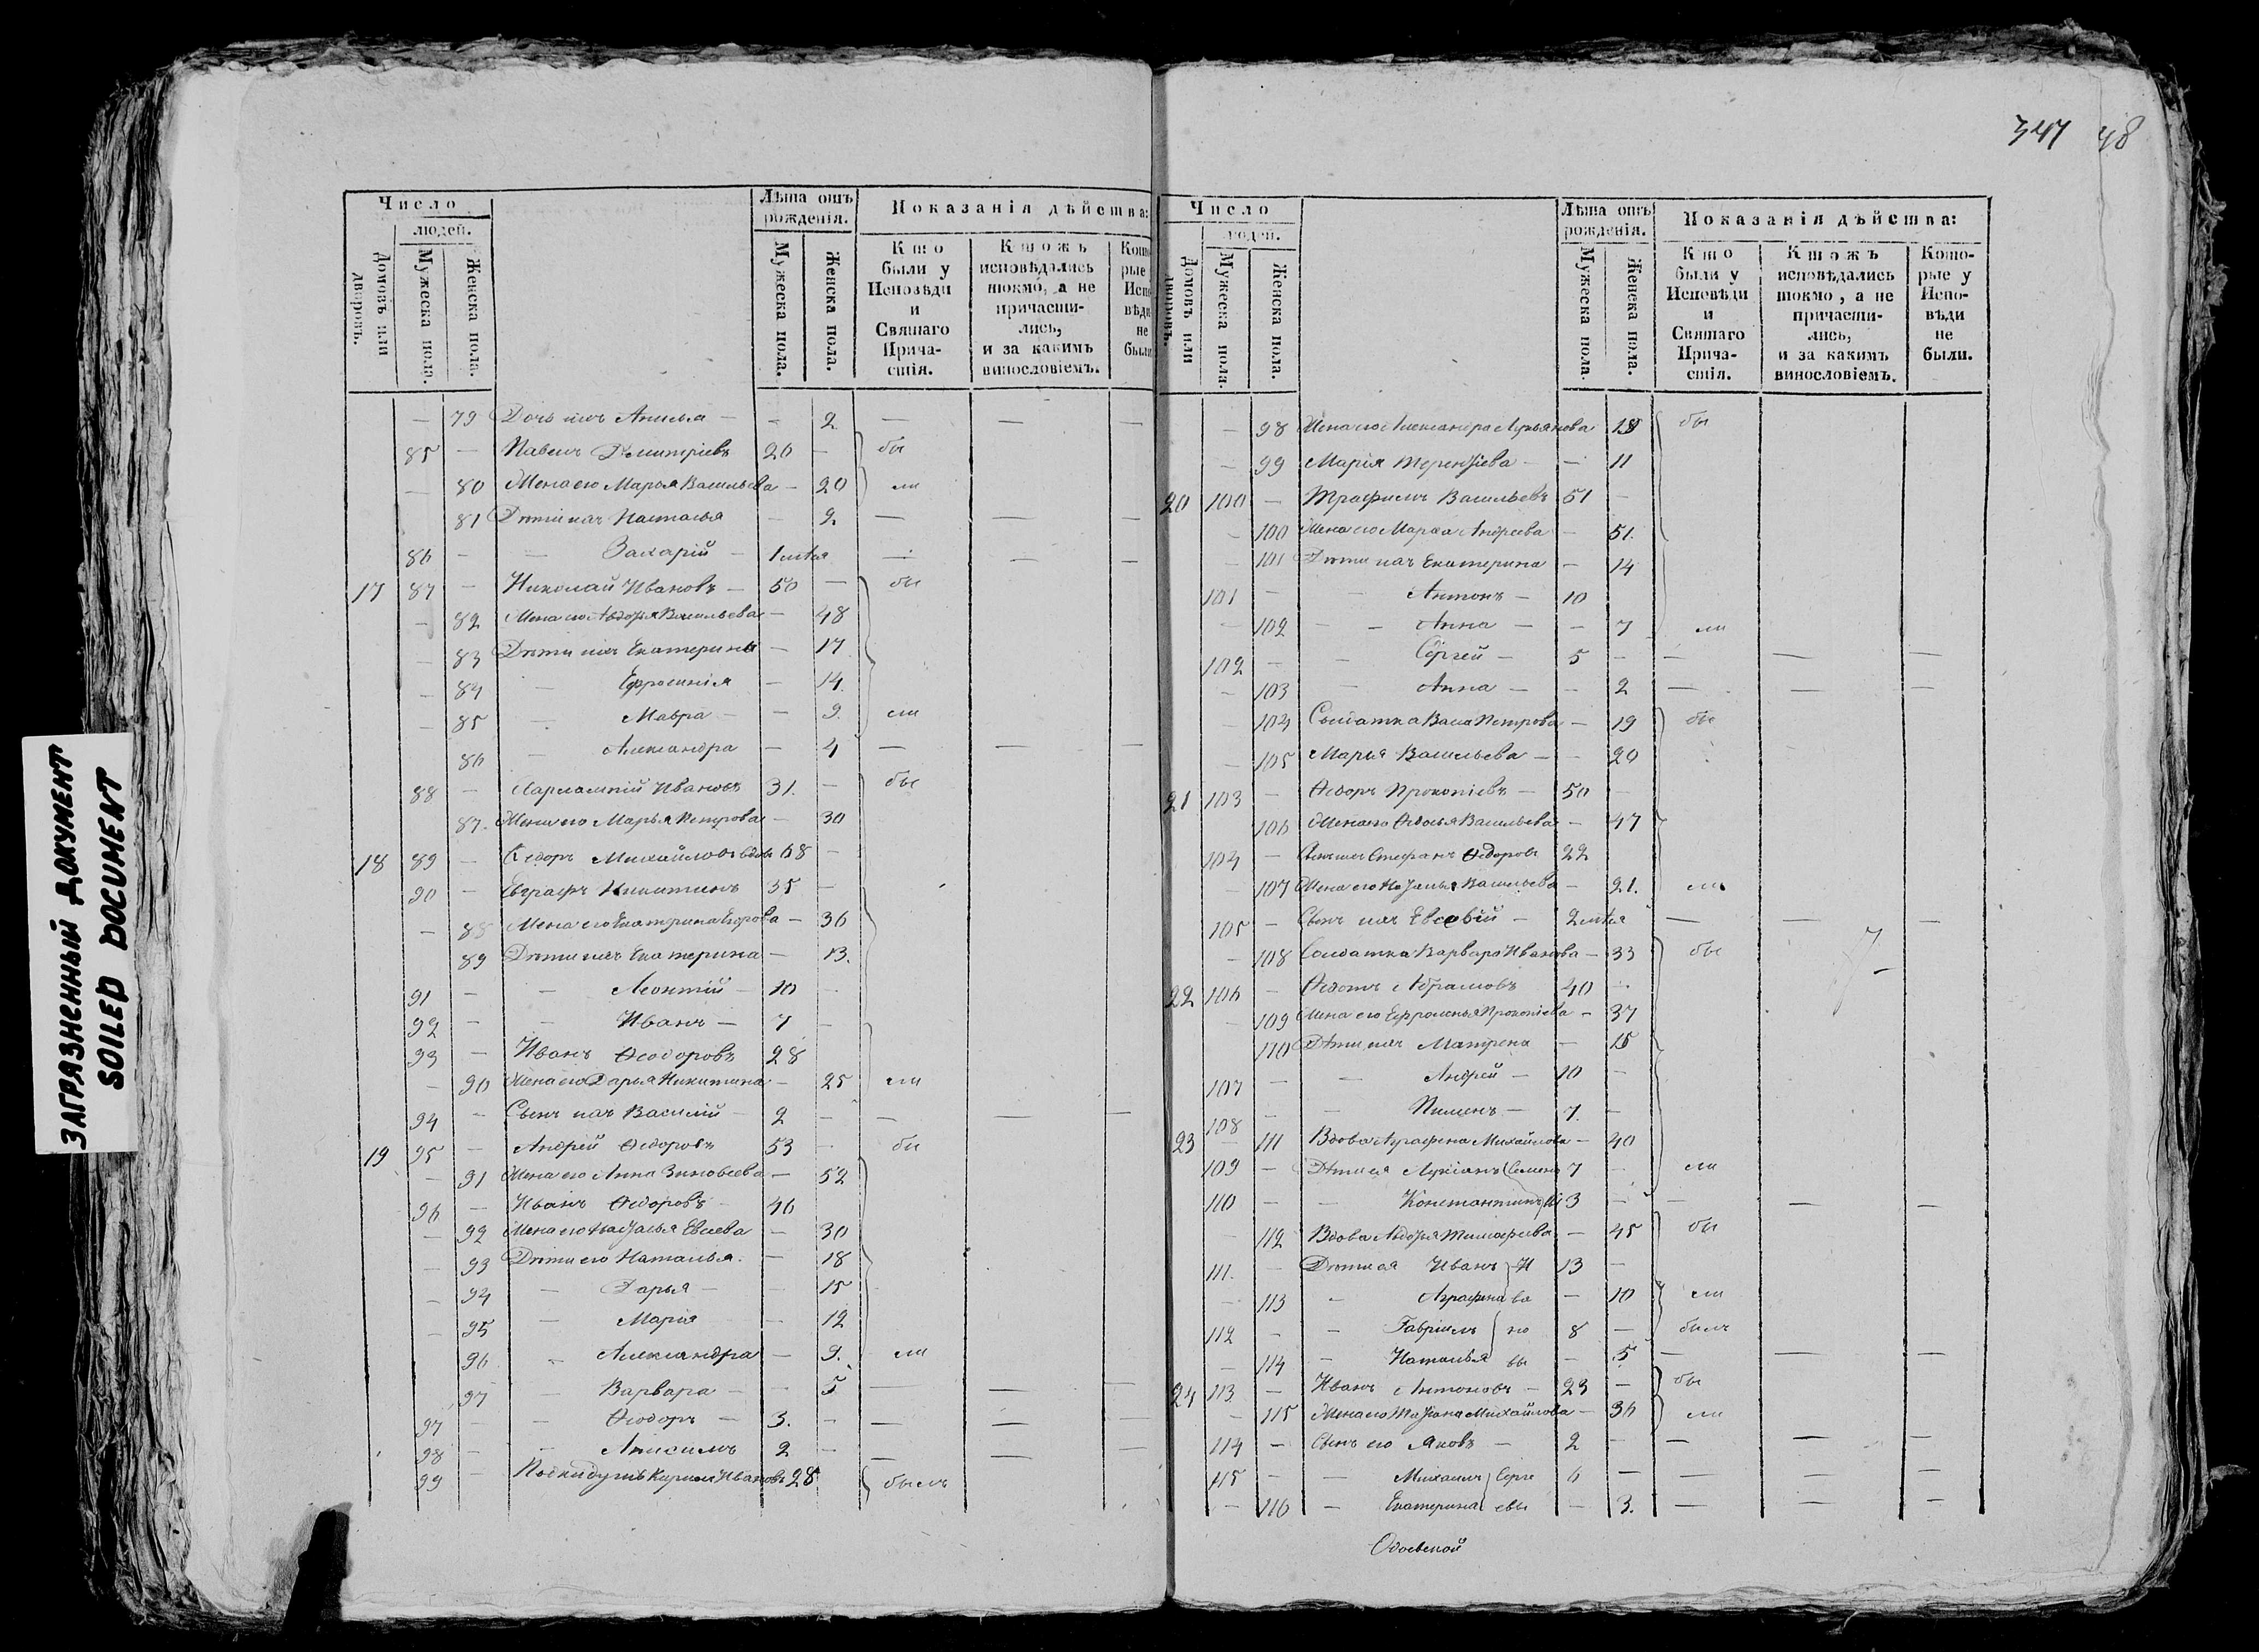 347 48
ЗАГРЯЗНЕННЫЙ ДОКУМЕНТ
SOILED DOCUMENT
Число
людей.
Домовъ или дворовъ.
Мужеска пола.
Женска пола.
Лѣта отъ рожденія.
Мужеска пола.
Женска пола.
Показанія дѣйства:
Кто были у Исповѣди и Святаго Причастія.
Ктожъ исповѣдались токмо, а не причастились, и за какимъ винословіемъ.
Кото рые Испо вѣди не были
— 79 Дочь ихъ Анисья — — 2 — — —
85 — Павелъ Димитріевъ 20 — бы
— 80 Жена его Марья Васильева — 20 ли
81 Дѣти ихъ Наталья — 2 — — —
86 — — Захарій — 1 — — —
17 87 — Николай Ивановъ — 50 — бы
— 82 Жена его Авдотья Васильева — 48
— 83 Дѣти ихъ Екатерина — 17
— 84 — Ефросинія — 14.
— 85 — Мавра — — 9. ли
86 — Александра — 4 — — —
88 — Харлампій Ивановъ 31. — бы
87. Жена его Марья Петрова — 30
18 89 — Ѳедоръ Михайловъ вдовъ 68 —
90 — Евграфъ Никитинъ 35 —
— 88 Жена его Екатерина Егорова — 36
89 Дѣти ихъ Екатерина — 13.
91 — — Леонтій — 10 —
92 — — Иванъ — 7 —
93 — Иванъ Ѳеодоровъ 28
— 90 Жена его Дарья Никитина — 25 ли
94 — Сынъ ихъ Василій — 2 — — — —
19 95 — Андрей Ѳедоровъ 53 — бы
— 91 Жена его Анна Зиновеева — 52
96 — Иванъ Ѳедоровъ 40
— 92 Жена его Наталья Евсеева — 30
— 93 Дѣти его Наталья. — 18
— 94 — Дарья — — 15
— 95 — Марія — 12
96 — Александра — 9. ли
97 — Варвара — — 5 — —
97 — — Ѳеодоръ — 3. — — —
98 — — Анисимъ 2 — — — —
99 — Подкидушъ Ивановъ 28 былъ
Число
людей.
Домовъ или дворовъ.
Мужеска пола.
Женска пола.
Лѣта отъ рожденія.
Мужеска пола.
Женска пола.
Показанія дѣйства:
Кто были у Исповѣди и Святаго Причастія.
Ктожъ исповѣдались токмо, а не причастились, и за какимъ винословіемъ.
Которые у Исповѣди не были.
— 98 Жена его Александра Лукьянова 18 бы
— 99 Марія Терентіева — — 11
20 100 — Трофимъ Васильевъ 51 —
— 100 Жена его Марѳа Андреева — 51.
— 101 Дѣти ихъ Екатерина — 14
101 — — Антонъ — 10
— 102 — — Анна — — 7 ли
102 — — Сергей — 5 — — — —
— 103 — Анна — — 2 — — —
— 104 Солдатка Петрова — 19 бы
— 105 Марья Васильева — — 20
21 103 — Ѳедоръ Прокопіевъ — 50 —
106 Жена его Ѳедосья Васильева — 47
104 — Сынъ ихъ Стефанъ Ѳедоровъ 22
— 107 Жена его Наталья Васильева — 21. ли
105 — Сынъ ихъ Евсевій — 2 — — —
— 108 Солдатка Варвара Иванова — 33 бы
22 106 — Ѳедотъ Абрамовъ 40 —
— 109 Жена его Ефросинья Прокопіева — 37
110 Дѣти ихъ Матрена — 15
107 — — Андрей — 10 —
108 — — Пименъ — 7. —
23 — 111 Вдова Аграфена Михайлова — 40
109 — Дѣти ея Лукіанъ Семено 7 — ли
110 — — Константинъ 3 — — — —
— 112 Вдова Авдотья Тимофеева — 45 бы
111. — Дѣти ея Иванъ И 13 —
— 113 — Аграфена ва — 10 ли
112 — — Гавріилъ но 8 — былъ
— 114 — Наталья вы — 5 — — —
24 113 — Иванъ Антоновъ — 23 — бы
— 115 Жена его Татіана Михайлова — 36 ли
114 — Сынъ его Яковъ — 2 — — — —
115 — — Михаилъ Серге 6 — — — —
— 116 — Екатерина евы — 3. — — —
Одоевской